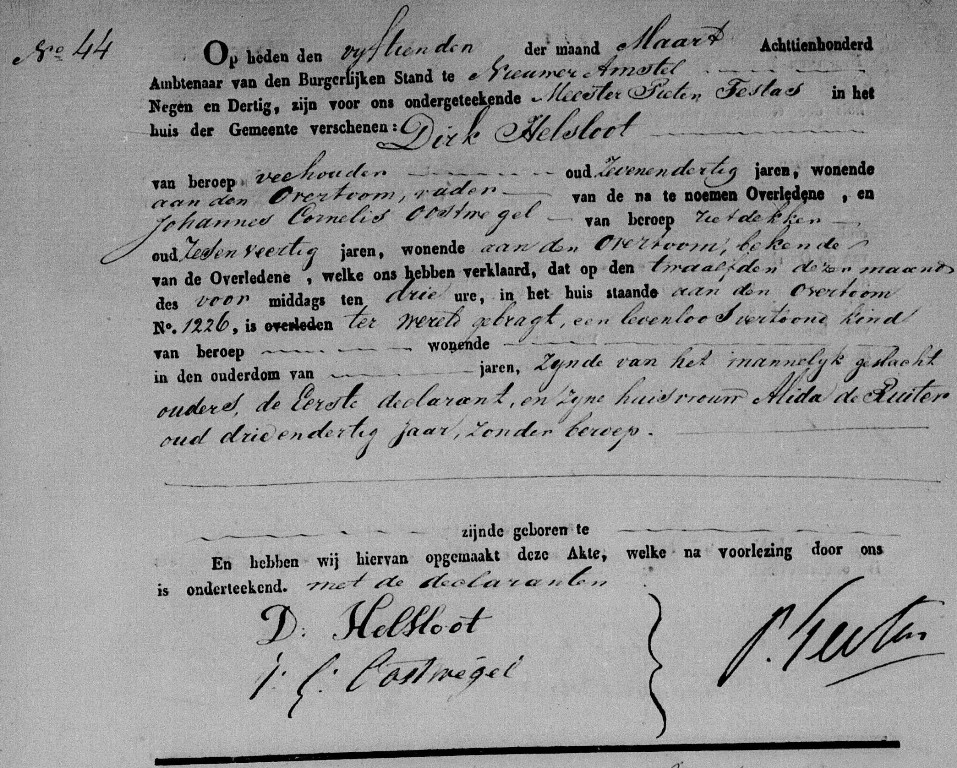 No 44
Op heden den vyftienden der maand Maart Achttienhonderd
Ambtenaar van den Burgerlijken Stand te Nieuwer Amstel
Negen en Dertig, zijn voor ons ondergeteekende Meester Pieter Testas in het
huis der Gemeente verschenen: Dirk Helsloot
van beroep veehouder oud Zevenendertig jaren, wonende
aan den Overtoom, vader van de na te noemen Overledene, en
Johannes Cornelis Oostwegel van beroep rietdekker
oud Zesenveertig jaren, wonende aan den Overtoom, bekende
van de Overledene, welke ons hebben verklaard, dat op den twaalfden dezer maand
des voor middags ten drie ure, in het huis staande aan den Overtoom
No. 1226, is overleden ter wereld gebragt, een levenloos vertoond kind
van beroep wonende
in den ouderdom van jaren, zynde van het mannelyk geslacht
ouders, de Eerste declarant, en zyne huisvrouw Alida de Ruiter
oud drieendertig jaar, zonder beroep.
zijnde geboren te
En hebben wij hiervan opgemaakt deze Akte, welke na voorlezing door ons
is onderteekend. met de declaranten
D: Helsloot
J: C: Oostwegel